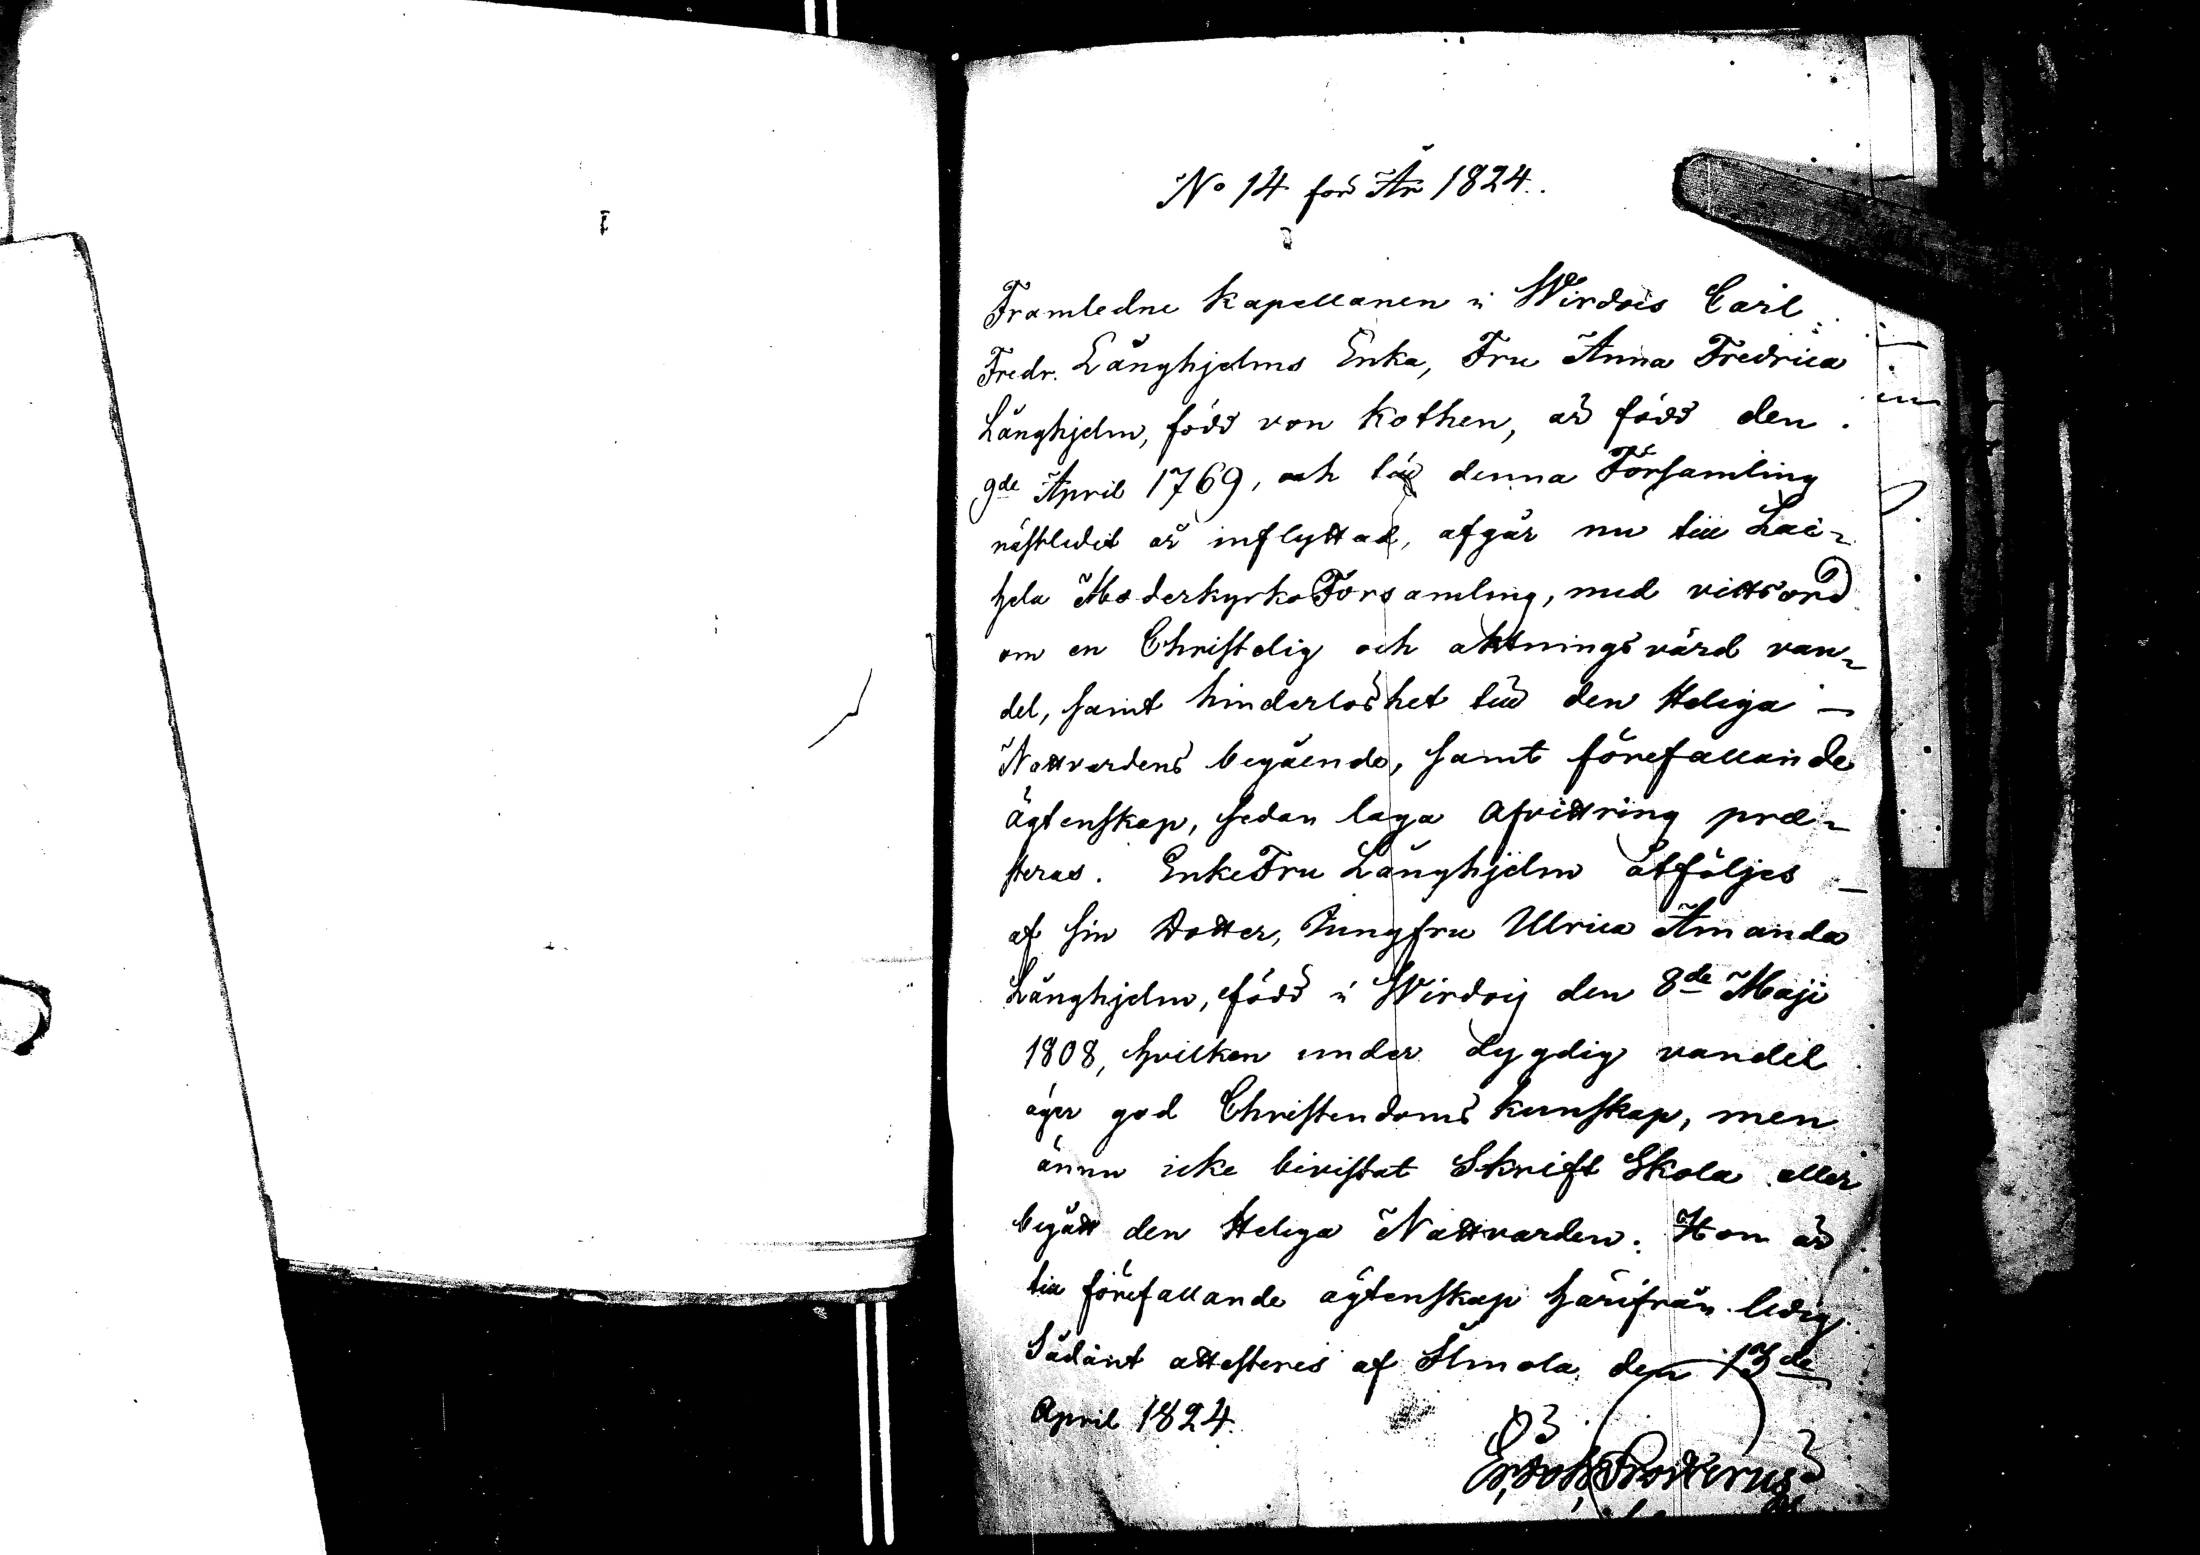 No 14 för År 1824.
Framledne Kapellanen i Wirdois Carl
Fredr. Långhjelms Enka, Fru Anna Fredrica
Långhjelm, född von Kothen, är född den
9de April 1769, och till denna Församling
nästledit år inflyttad, afgår nu till Lai-
hela Moderkyrko Församling, med vittsord
om en Christelig och aktningsvärd van-
del, samt hinderlöshet till den Heliga
Nattvardens begående, samt förefallande
ägtenskap, sedan laga afvittring præ-
steras. EnkeFru Långhjelm åtföljes
af sin Dotter, Jungfru Ulrica Amanda
Långhjelm, född i Wirdoij den 8de Maji
1808, hvilken under dygdig vandel
äger god Christendoms kunskap, men
ännu icke bevistat Skrift Skola eller
begått den Heliga Nattvarden. Hon är
till förefallande ägtenskap härifrån ledig
Sådant attesteres af Ilmola, den 13de
April 1824.